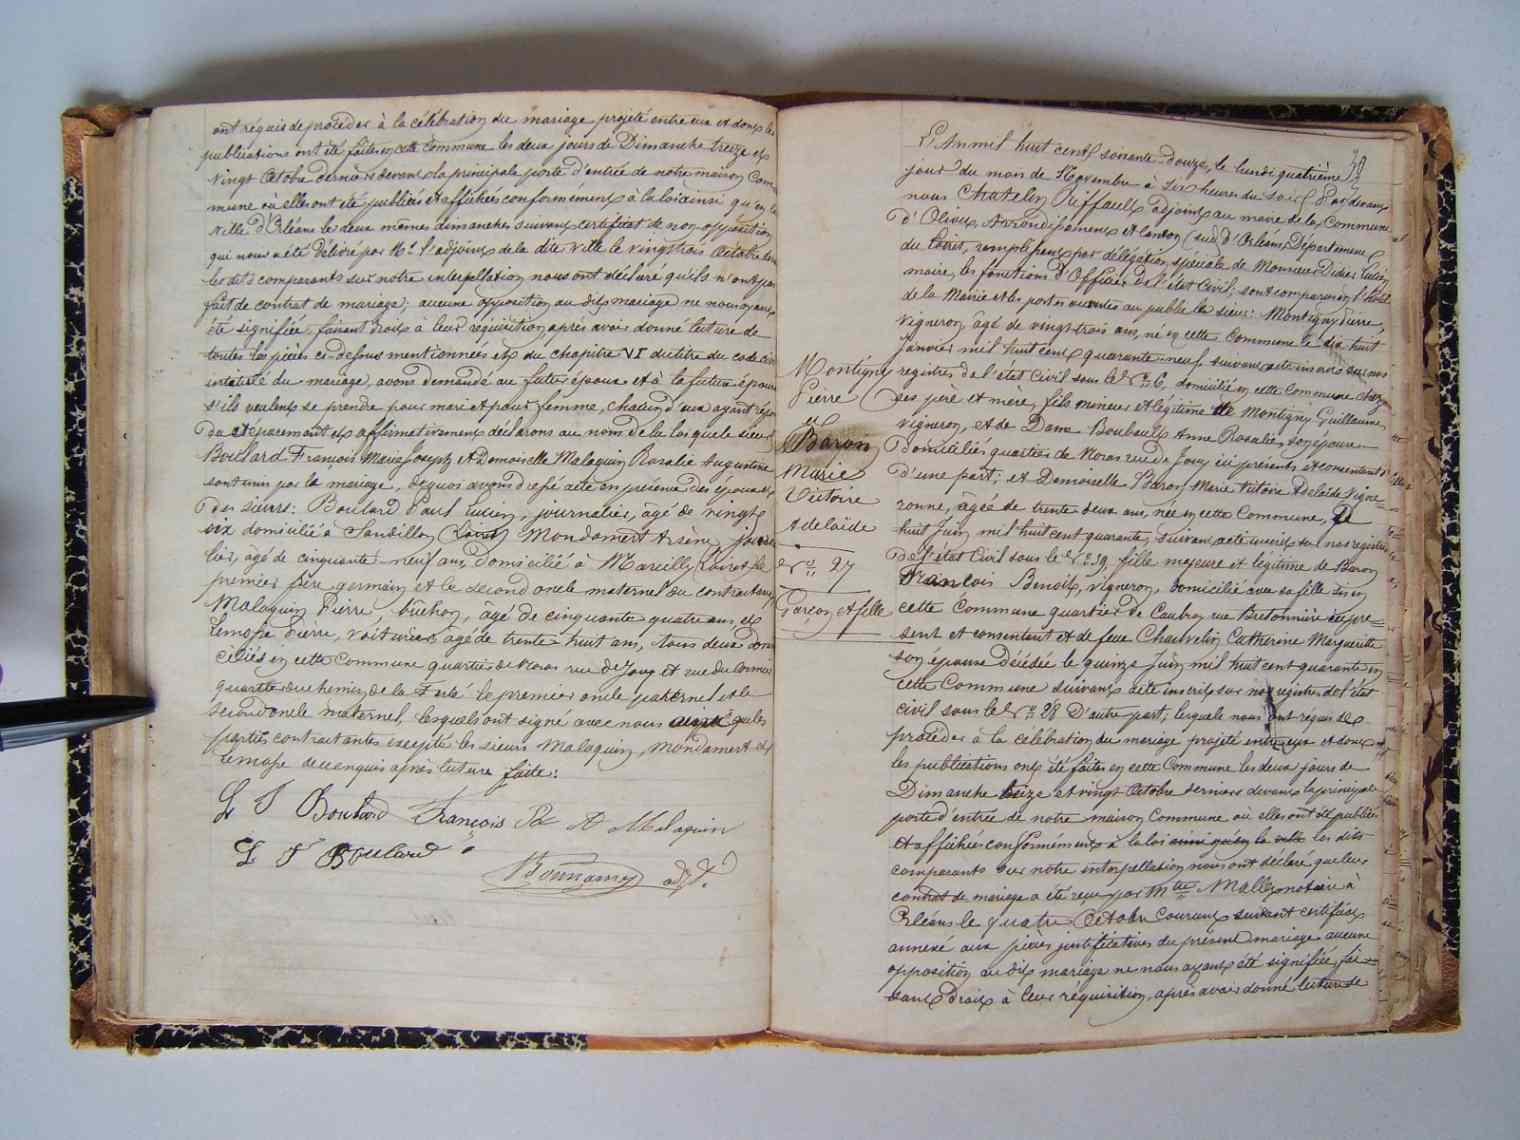 ont réquis de procéder à la célébration du mariage projeté entre eux et dont les
publications ont été faites en cette Commune les deux jours de Dimanche treize et
vingt Octobre derniers devant la principale porte d'entrée de notre maison Com
mune ou elles ont été publiées et affichées conformément à la loi ainsi qu'en la
ville d'Orléans les deux mêmes dimanches suivant certificat de non opposition
qui nous a été délivré par Mr l'adjoint de la dite ville le vingt trois Octobre
les dits comparants sur notre interpellation nous ont déclaré qu'ils n'ont pas
fait de contrat de mariage; aucune opposition au dit mariage ne nous ayant
été signifiée, faisant droit à leur réquisition, après avoir donné lecture de
toutes les pièces ci-dessus mentionnées et du chapitre VI du titre du code civil
intitulé du mariage, avons demandé au futur époux et à la future épouse
s'ils veulent se prendre pour mari et pour femme, chacun d'eux ayant répon
du séparément et affirmativement déclarons au nom de la loi que le sieur
Boulard François Marie Joseph et Demoiselle Malaquin Rosalie Augustine
sont unis par le mariage, de quoi avons dressé acte en présence des époux et
des sieurs: Boulard Paul Lucien, journalier, âgé de vingt
six domicilié à Sandillon (Loiret) Mondamert Arsène, journa
lier, âgé de cinquante neuf ans, domicilié à Marcilly (Loiret) le
premier frère germain et le second oncle maternel du contractant,
Malaquin Pierre, bûcheron, âgé de cinquante quatre ans, et
Lemasse Pierre, voiturier, âgé de trente huit ans, tous deux domi
ciliés en cette Commune quartier de Noras rue de Jouy et rue du Cormier
quartier du chemin de la Ferté le premier oncle paternel et le
second oncle maternel, lesquels ont signé avec nous ainsi que les
parties contractantes excepté les sieurs Malaquin, Mondamert et
Lemasse de ce enquis après lecture faite:
L F Boulard François R A Malaquin
L F Boulard
Bonnamy adjt.
39
L'An mil huit cent soixante-douze, le lundi quatrième
jour du mois de Novembre à six heures du soir, Pardevant
nous Chatelin Riffault adjoint au maire de la Commune
d'Olivet Arrondissement et Canton (sud) d'Orléans, Département
du Loiret, remplissant par délégation spéciale de Monsieur Didier Lucien,
maire, les fonctions d'Officier de l'état Civil; sont comparus en l'hôtel
de la Mairie et les portes ouvertes au public le sieur: Montigny Pierre,
vigneron, âgé de vingt-trois ans, né en cette Commune le dix huit
Janvier mil huit cent quarante-neuf, suivant acte inscrit sur nos
registres de l'état Civil sous le No 6, domicilié en cette Commune chez
ses père et mère, fils mineur et légitime de Montigny Guillaume,
vigneron, et de Dame Boubault Anne Rosalie, son épouse
domiciliés quartier de Noras rue de Jouy ici présents et consentants
d'une part; et Demoiselle Baron Marie Victoire Adelaïde Vigne
ronne, âgée de trente deux ans, née en cette Commune, le
huit Juin mil huit cent quarante, suivant acte inscrit sur nos registres
de l'état Civil sous le No 39, fille majeure et légitime de Baron
François Benoît, vigneron, domicilié avec sa fille sis en
cette Commune quartier de Caubray rue Bretonnière ici pré=
sent et consentant et de feue Chauvelin Catherine Marguerite
son épouse décédée le quinze Juin mil huit cent quarante en
cette Commune suivant acte inscrit sur nos registres de l'état
civil sous le No 28 D'autre part; lesquels nous ont réquis de
procéder à la célébration du mariage projeté entre eux et dont
les publications ont été faites en cette Commune les deux jours de
Dimanche treize et vingt Octobre derniers devant la principale
porte d'entrée de notre maison Commune où elles ont été publiées
et affichées conformément à la loi ainsi qu'en la ville les dits
comparants sur notre interpellation nous ont déclaré que leur
contrat de mariage a été reçu par Mtre Mallet notaire à
Orléans le quatre Octobre courant suivant certificat
annexé aux pièces justificatives du présent mariage aucune
opposition au dit mariage ne nous ayant été signifiée, fai=
sant droit à leur réquisition, après avoir donné lecture de
Montigny
Pierre
et
Baron
Marie
Victoire
Adelaïde
No 27
Garçon et fille